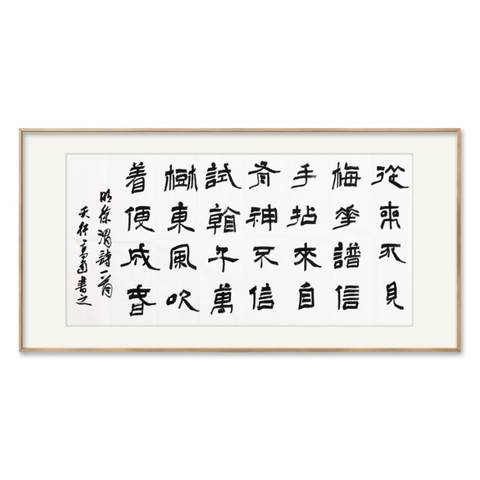 從來不見
梅華譜信
手拈來自
有神不信
試看千萬
樹東風吹
着便成春
明徐渭詩一首
書之